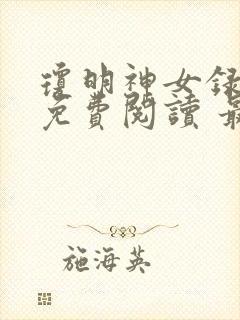 瓊明神女錄
免費閱讀 最
施海英